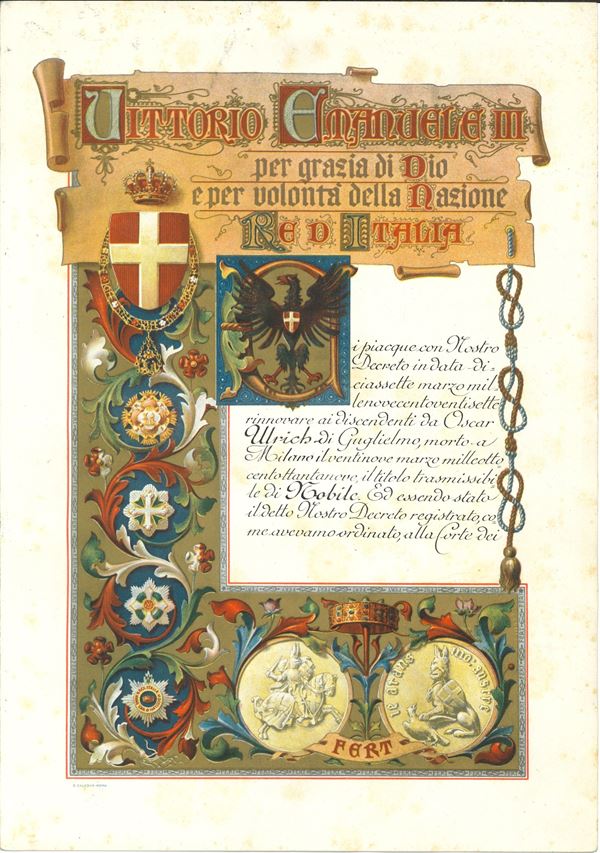 VITTORIO EMANUELE III
per grazia di Dio
e per volontá della Nazione
RE D ITALIA
i piacque con Nostro
Decreto in data di-
ciassette marzo mil
lenovecentoventisette
rinnovare ai discendenti da Oscar
Ulrich di Guglielmo, morto a
Milano il ventinove marzo milleotto
centottantanove, il titolo trasmissibi
le di Nobile. Ed essendo stato
il detto Nostro Decreto registrato, co
me avevamo ordinato, alla Corte dei
FERT